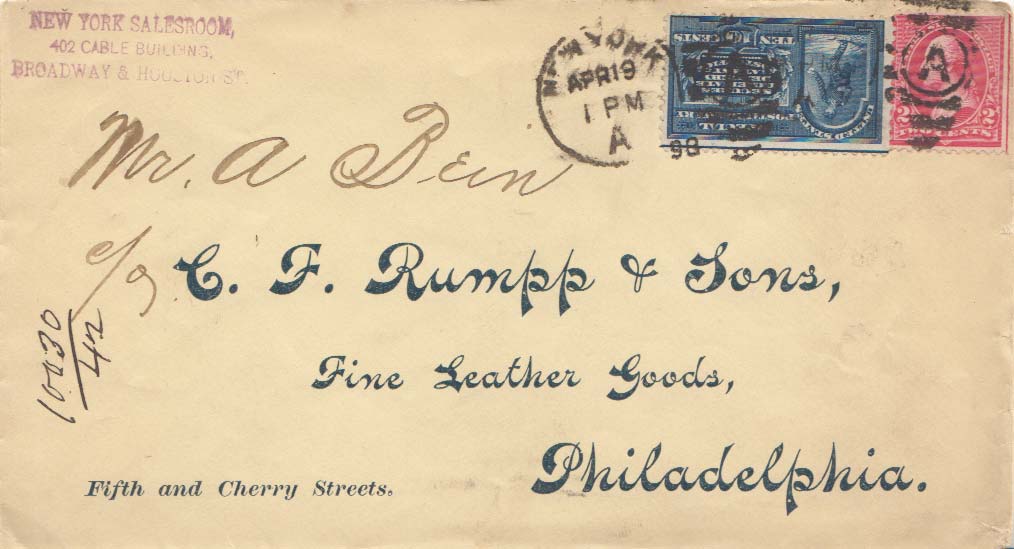 NEW YORK SALESROOM,
402 CABLE BUILDING,
BROADWAY & HOUSTON ST.
NEW YORK
APR 19
1 PM
A
98
A
2 2
TWO CENTS
TEN CENTS
Mr. A Bein
c/o C. F. Rumpp & Sons,
Fine Leather Goods,
Philadelphia.
Fifth and Cherry Streets.
10030
42